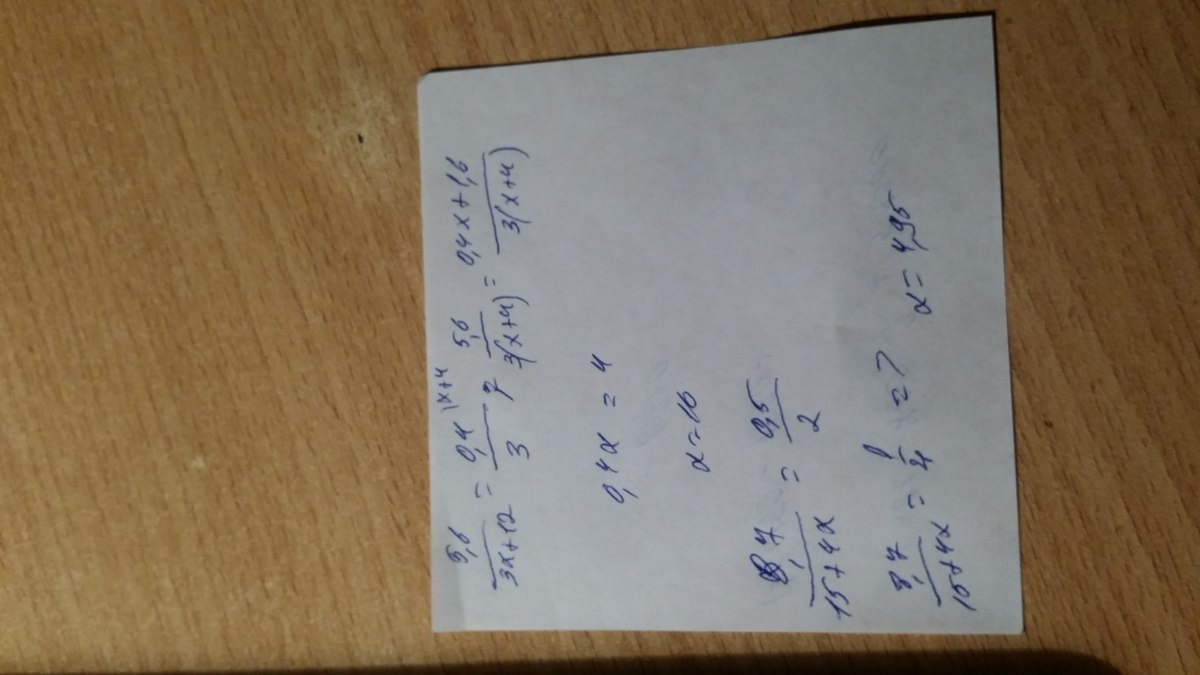 5,6/3x+12 = 0,4/3 |x+4 ⇒ 5,6/3(x+4) = 0,4x+1,6/3(x+4)
0,4x = 4
x=10
8,7/15+4x = 0,5/2
8,7/15+4x = 1/4 => x=4,95